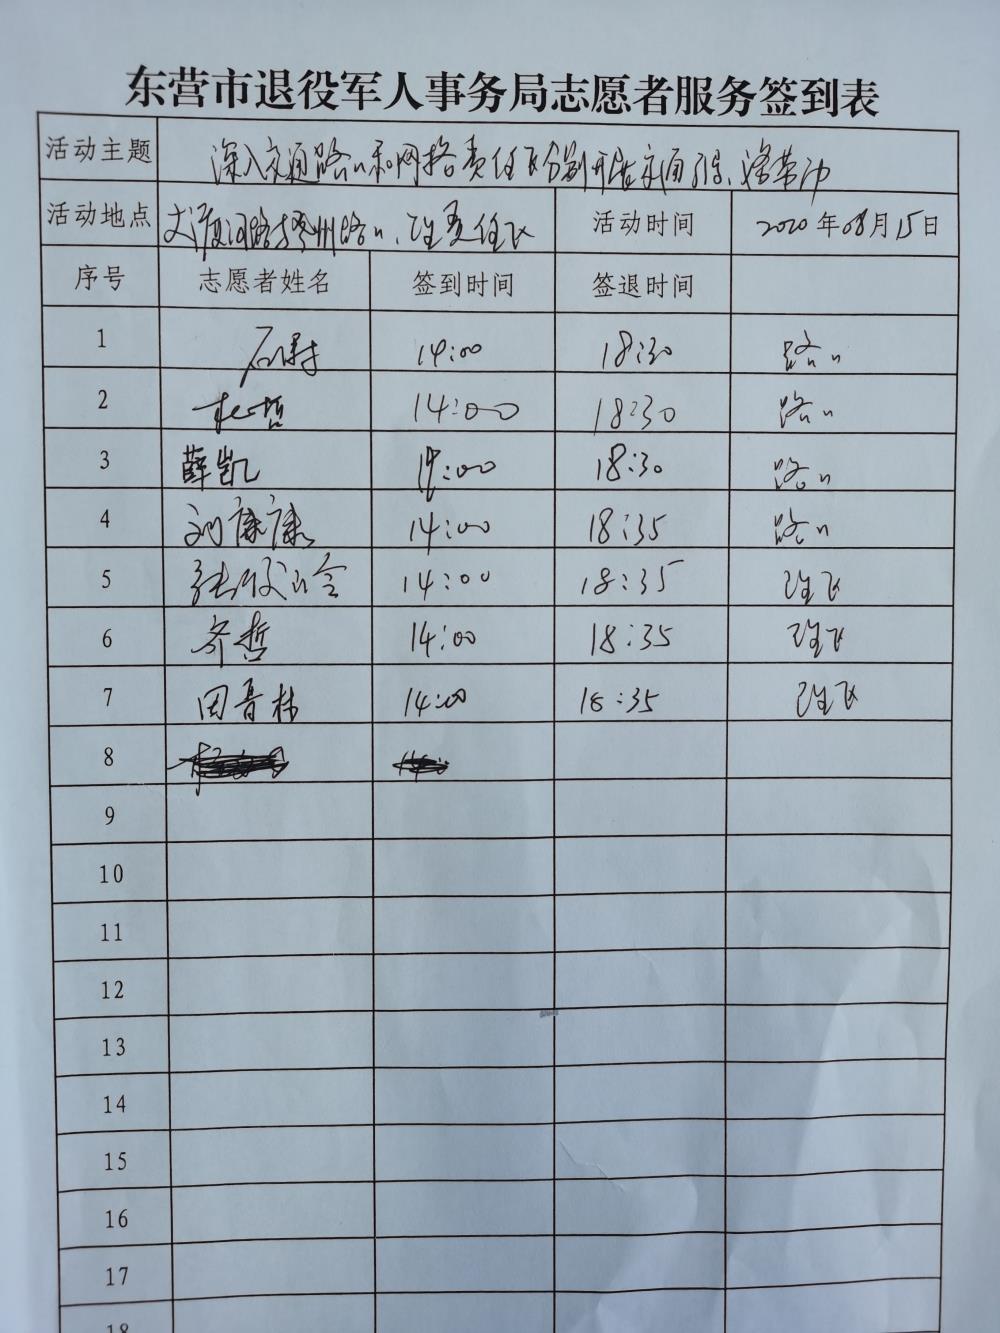 东营市退役军人事务局志愿者服务签到表
活动主题 深入交通路口和网格责任区分别开展交通
活动地点 路口、责任区 活动时间 2020年08月15日
序号 志愿者姓名 签到时间 签退时间
1 14:00 18:30 路口
2 杜哲 14:00 18:30 路口
3 薛凯 14:00 18:30 路口
4 刘康康 14:00 18:35 路口
5 14:00 18:35
6 齐哲 14:00 18:35
7 田晋林 14:00 18:35
8
9
10
11
12
13
14
15
16
17
18